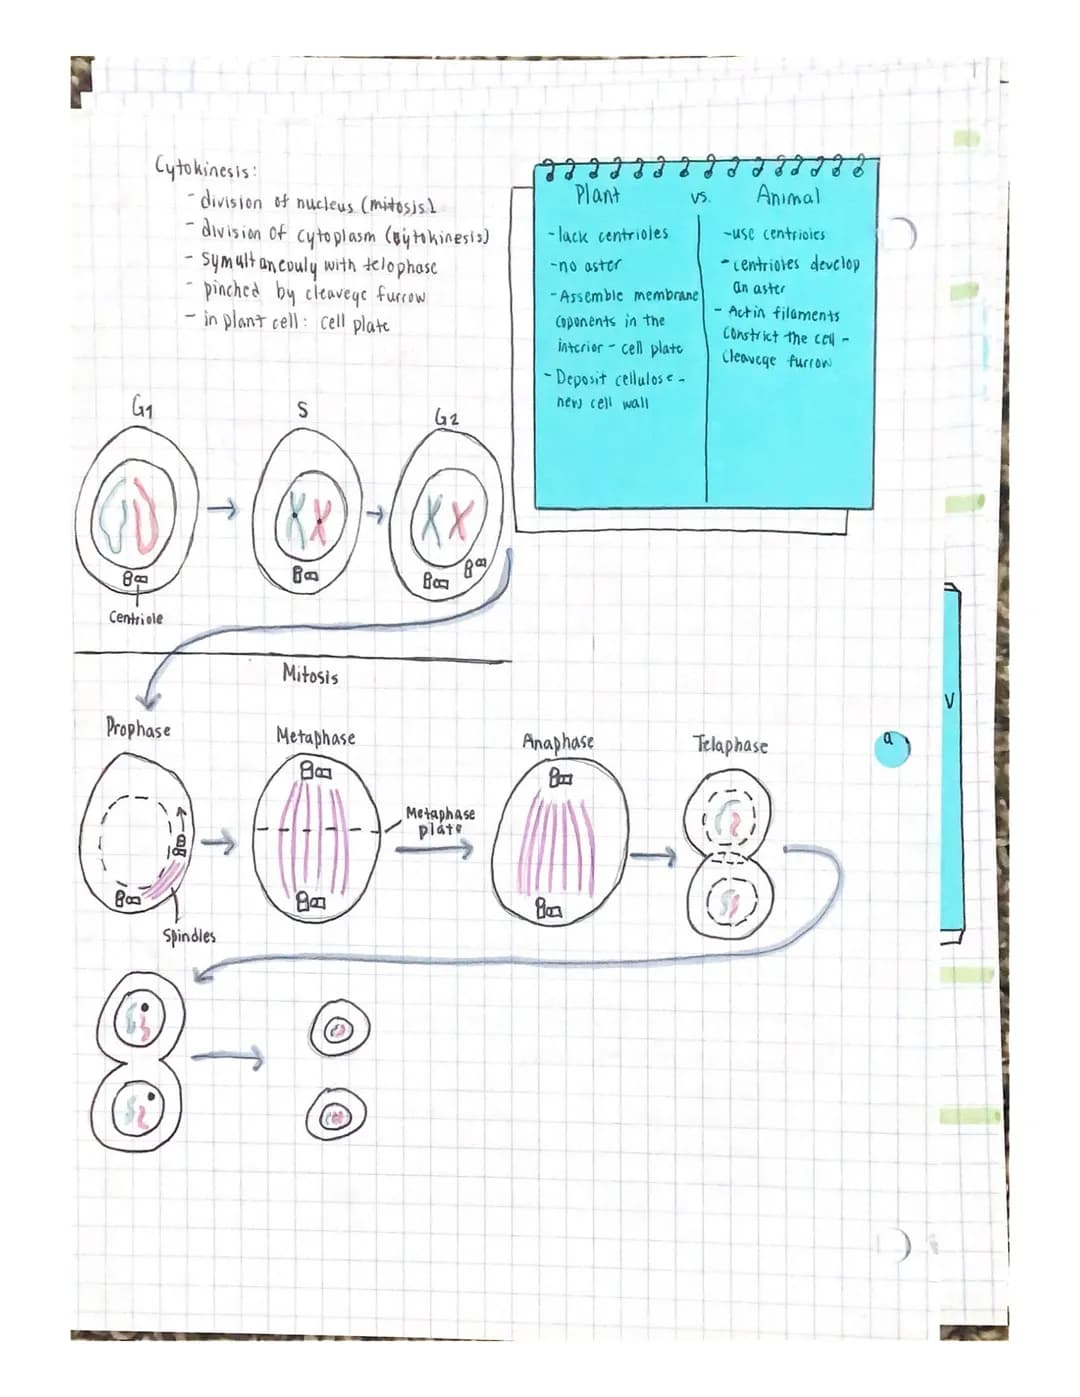 Cytokinesis:
- division of nucleus (mitosis)
- division of cytoplasm (cytokinesis)
- Symultaneouly with telophase
- pinched by cleavege furrow
- in plant cell: cell plate
Plant vs. Animal
- lack centrioles
- no aster
- Assemble membrane
coponents in the
interior - cell plate
- Deposit cellulose -
new cell wall
- use centrioles
- centrioles develop
an aster
- Actin filaments
Constrict the cell -
Cleavege furrow
G1
S
G2
Centriole
Mitosis
Prophase
Metaphase
Anaphase
Telaphase
Metaphase
plate
Spindles
V
a